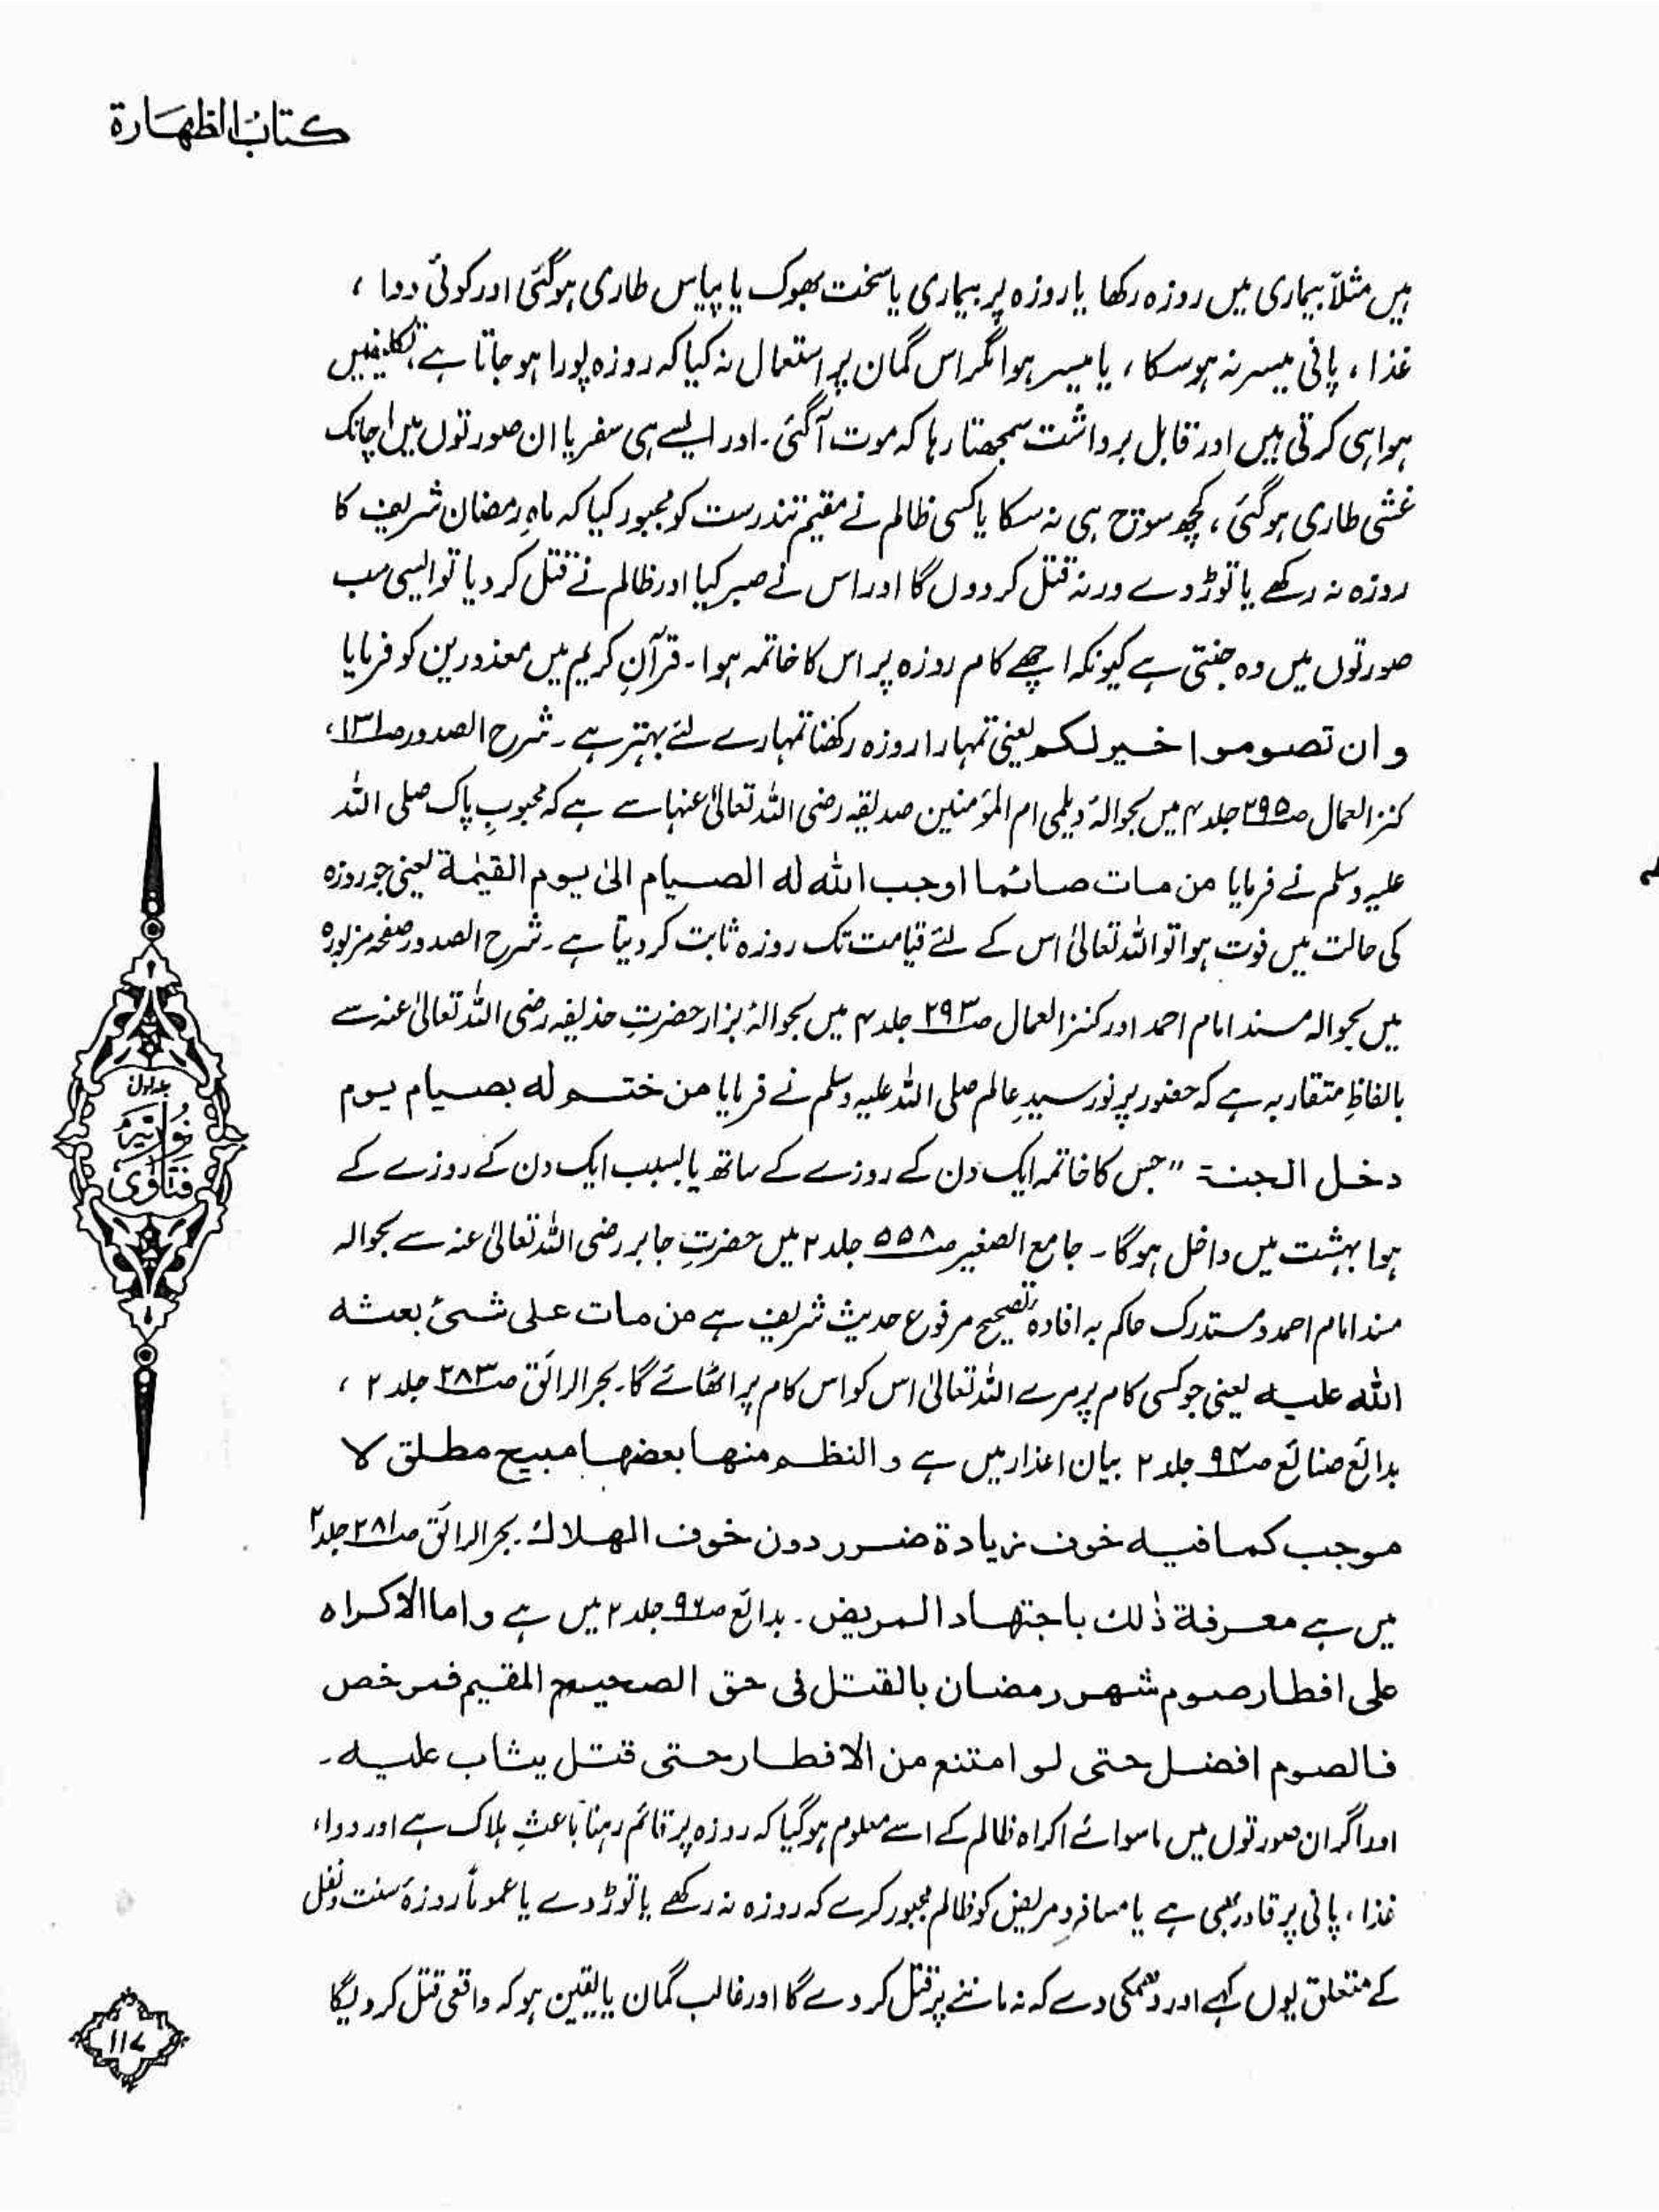 كتابُ الطهَارة
ہیں مثلاً بیماری میں روزہ رکھا یا روزہ پر بیماری یا سخت بھوک یا پیاس طاری ہوگئی اور کوئی دوا ،
غذا ، پانی میسر نہ ہوسکا ، یا میسر ہوا مگر اس گمان پر استعمال نہ کیا کہ روزہ پورا ہو جاتا ہے ، تکلیفیں
ہوا ہی کرتی ہیں اور قابل برداشت سمجھتا رہا کہ موت آگئی ۔ اور ایسے ہی سفر یا ان صورتوں میں اچانک
غشی طاری ہوگئی ، کچھ سوچ ہی نہ سکا یا کسی ظالم نے مقیم تندرست کو مجبور کیا کہ ماہِ رمضان شریف کا
روزہ نہ رکھے یا توڑ دے ورنہ قتل کر دوں گا اور اس نے صبر کیا اور ظالم نے قتل کر دیا تو ایسی سب
صورتوں میں وہ جنتی ہے کیونکہ اچھے کام روزہ پر اس کا خاتمہ ہوا ۔ قرآنِ کریم میں معذورین کو فرمایا
و ان تصوموا خیر لکم یعنی تمہارا روزہ رکھنا تمہارے لئے بہتر ہے ۔ شرح الصدور صـ۱۳۱ ،
کنز العمال صـ۲۹۵ جلد ۴ میں بحوالۂ دیلمی ام المؤمنین صدیقہ رضی اللہ تعالیٰ عنہا سے ہے کہ محبوبِ پاک صلی اللہ
علیہ وسلم نے فرمایا من مات صائما اوجب اللہ لہ الصیام الیٰ یوم القیٰمۃ یعنی جو روزہ
کی حالت میں فوت ہوا تو اللہ تعالیٰ اس کے لئے قیامت تک روزہ ثابت کر دیتا ہے ۔ شرح الصدور صفحہ مزبورہ
میں بحوالہ مسند امام احمد اور کنز العمال صـ۲۹۳ جلد ۴ میں بحوالۂ بزار حضرتِ حذیفہ رضی اللہ تعالیٰ عنہ سے
بالفاظِ متقاربہ ہے کہ حضور پر نور سیدِ عالم صلی اللہ علیہ وسلم نے فرمایا من ختم لہ بصیام یوم
دخل الجنۃ "جس کا خاتمہ ایک دن کے روزے کے ساتھ یا بسبب ایک دن کے روزے کے
ہوا بہشت میں داخل ہوگا ۔ جامع الصغیر صـ۵۵۸ جلد ۲ میں حضرتِ جابر رضی اللہ تعالیٰ عنہ سے بحوالہ
مسند امام احمد و مستدرک حاکم بہ افادہ تصحیح مرفوع حدیث شریف ہے من مات علی شیئ بعثہ
اللہ علیہ یعنی جو کسی کام پر مرے اللہ تعالیٰ اس کو اس کام پر اٹھائے گا ۔ بحر الرائق صـ۲۸۳ جلد ۲ ،
بدائع صنائع صـ۹۴ جلد ۲ بیان اعذار میں ہے و النظم منہا بعضہا مبیح مطلق لا
موجب کما فیہ خوف زیادۃ ضرر دون خوف الہلاک ۔ بحر الرائق صـ۲۸۱ جلد ۲
میں ہے معرفۃ ذٰلک باجتہاد المریض ۔ بدائع صـ۹۶ جلد ۲ میں ہے و اما الاکراہ
علی افطار صوم شہر رمضان بالقتل فی حق الصحیح المقیم فمرخص
فالصوم افضل حتی لو امتنع من الافطار حتی قتل یثاب علیہ ۔
اور اگر ان صورتوں میں ماسوائے اکراہ ظالم کے اسے معلوم ہوگیا کہ روزہ پر قائم رہنا باعثِ ہلاک ہے اور دوا ،
غذا ، پانی پر قادر بھی ہے یا مسافر و مریض کو ظالم مجبور کرے کہ روزہ نہ رکھے یا توڑ دے یا عموماً روزۂ سنت و نفل
کے متعلق یوں کہے اور دھمکی دے کہ نہ ماننے پر قتل کر دے گا اور غالب گمان یا یقین ہو کہ واقعی قتل کر دیگا
جلد اول
فتاویٰ نوریہ
۱۱۷